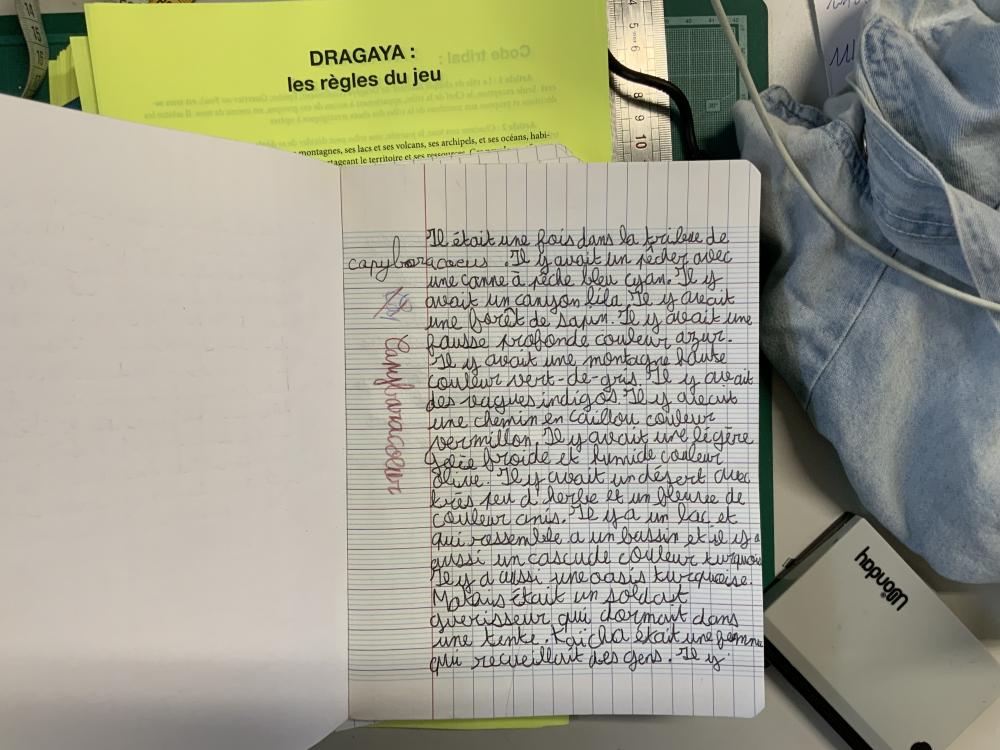 DRAGAYA :
les règles du jeu
Code tribal :
montagnes, ses lacs et ses volcans, ses archipels, et ses océans, habi-
tageant le territoire et ses ressources.
Il était une fois dans la tribue de
capybaracoeus. Il y avait un pêcher avec
une canne à pêche bleu cyan. Il y
avait un canyon lila. Il y avait
une forêt de sapin. Il y avait une
fausse profonde couleur azur.
Il y avait une montagne haute
couleur vert-de-gris. Il y avait
des vagues indigos. Il y avait
une chemin en caillou couleur
vermillon. Il y avait une légère
froide et humide couleur
olive. Il y avait un désert avec
très peu d'herbe et un fleuve de
couleur anis. Il y a un lac et
qui rassemble a un bassin et il y a
aussi un cascade couleur turquois
Il y a aussi une oasis turquoise.
était un soldat
guerisseur qui dormait dans
une tente. Kaïcha était une femme
qui recueillait des gens. Il y
Capybaracoeur
Wonday